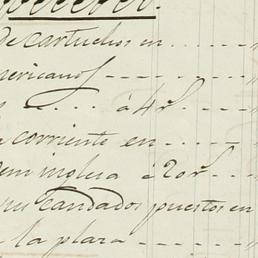 de cartuchos en
mericanos
á 4 r.
corriente en
dem inglesa á 20 r.
candados puestos en
la plaza